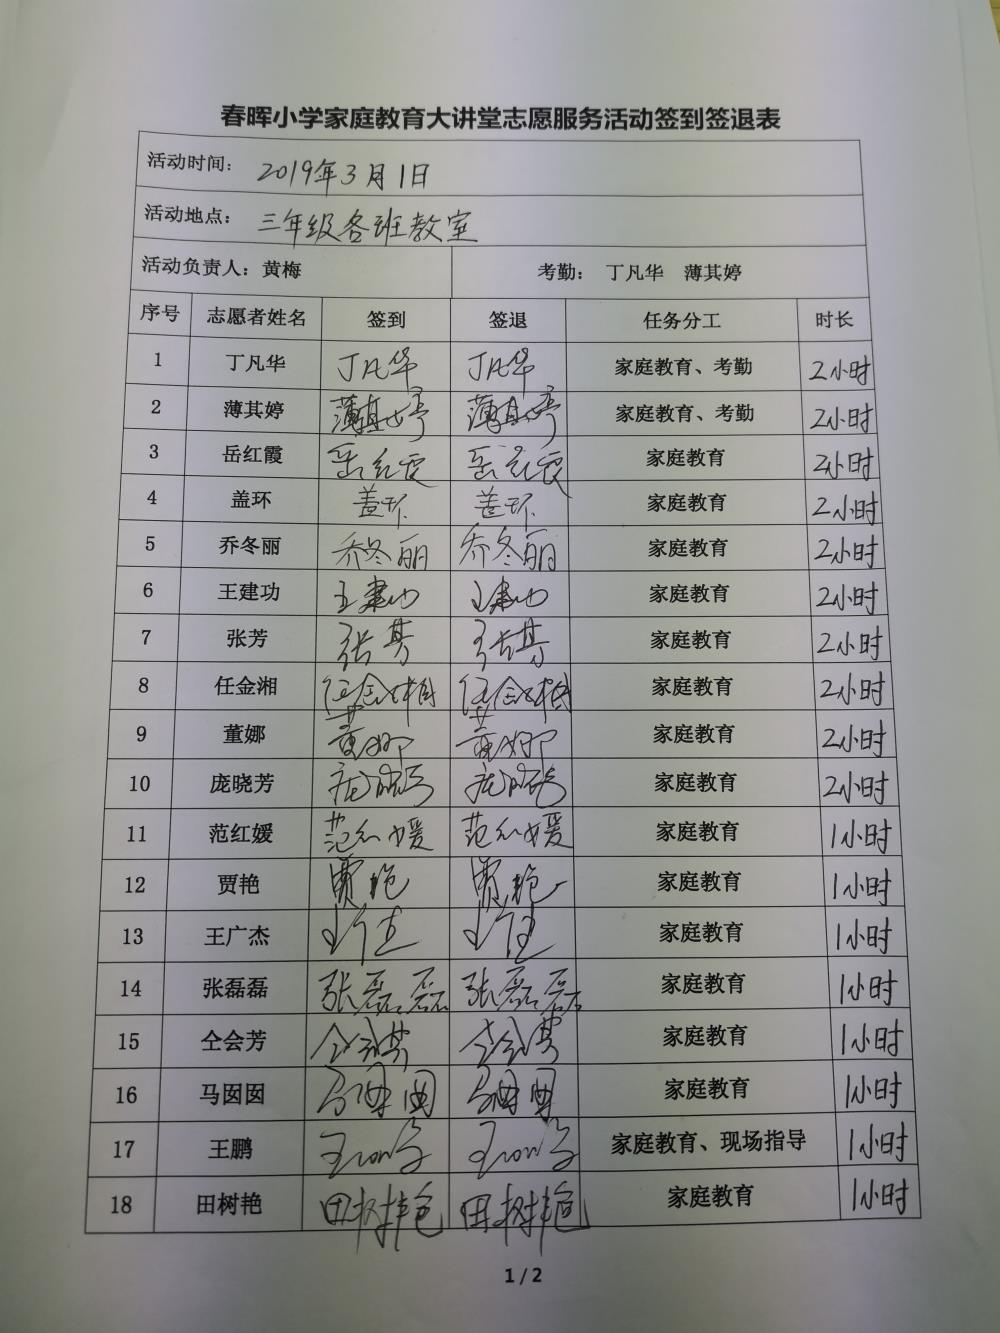 春晖小学家庭教育大讲堂志愿服务活动签到签退表
活动时间： 2019年3月1日
活动地点： 三年级各班教室
活动负责人：黄梅 考勤： 丁凡华 薄其婷
序号 志愿者姓名 签到 签退 任务分工 时长
1 丁凡华 丁凡华 丁凡华 家庭教育、考勤 2小时
2 薄其婷 薄其婷 薄其婷 家庭教育、考勤 2小时
3 岳红霞 岳红霞 岳红霞 家庭教育 2小时
4 盖环 盖环 盖环 家庭教育 2小时
5 乔冬丽 乔冬丽 乔冬丽 家庭教育 2小时
6 王建功 王建功 王建功 家庭教育 2小时
7 张芳 张芳 张芳 家庭教育 2小时
8 任金湘 任金湘 任金湘 家庭教育 2小时
9 董娜 董娜 董娜 家庭教育 2小时
10 庞晓芳 庞晓芳 庞晓芳 家庭教育 2小时
11 范红媛 范红媛 范红媛 家庭教育 1小时
12 贾艳 贾艳 贾艳 家庭教育 1小时
13 王广杰 家庭教育 1小时
14 张磊磊 张磊磊 张磊磊 家庭教育 1小时
15 仝会芳 仝会芳 仝会芳 家庭教育 1小时
16 马囡囡 马囡囡 马囡囡 家庭教育 1小时
17 王鹏 王鹏 王鹏 家庭教育、现场指导 1小时
18 田树艳 田树艳 田树艳 家庭教育 1小时
1 / 2